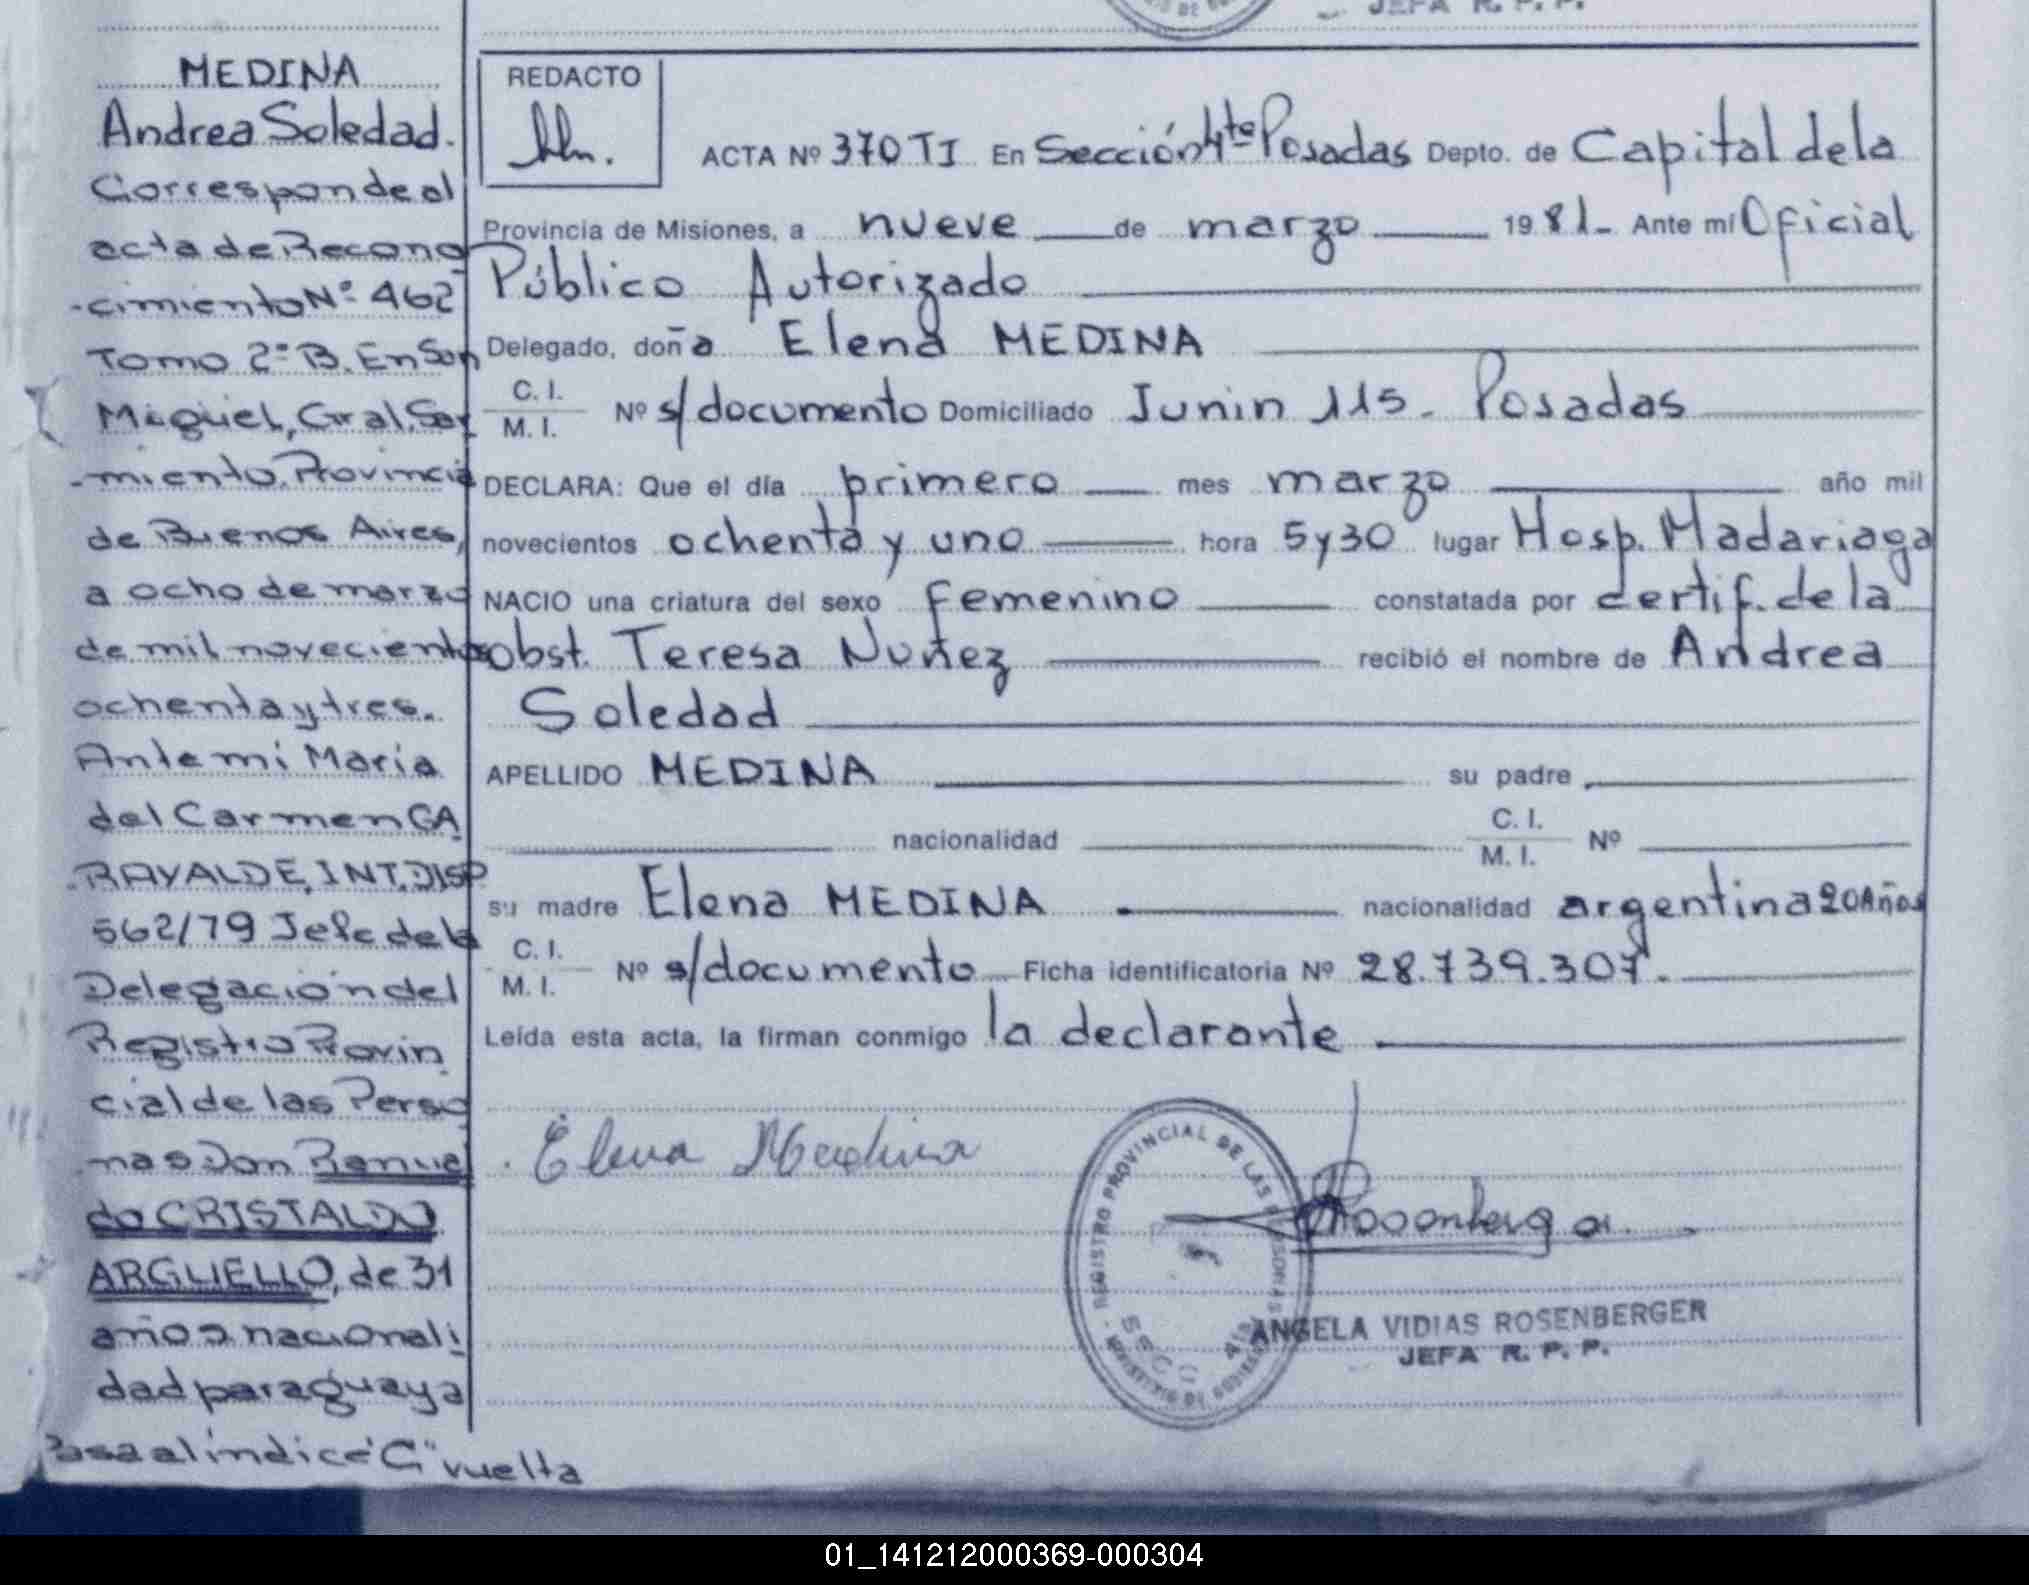 JEFA R. P. P.
MEDINA
Andrea Soledad.
Corresponde al
acta de Recono
-cimiento Nº 462
Tomo 2º B. En San
Miguel, Gral. Sar
-miento, Provincia
de Buenos Aires,
a ocho de marzo
de mil novecientos
ochenta y tres.
Ante mi Maria
del Carmen GA
RAYALDE, INT. DISP
562/79 Jefe de la
Delegación del
Registro Provin
cial de las Perso
nas Don
do CRISTALDO
ARGUELLO, de 31
años nacionali
dad paraguaya
Pasa al indice "G" vuelta
REDACTO
ACTA Nº 370 TI En Sección 4ta Posadas Depto. de Capital de la
Provincia de Misiones, a nueve de marzo 1981- Ante mí Oficial
Público Autorizado
Delegado, doña Elena MEDINA
C. I.
M. I. Nº s/documento Domiciliado Junin 115. Posadas
DECLARA: Que el día primero mes marzo año mil
novecientos ochenta y uno hora 5 y 30 lugar Hosp. Madariaga
NACIO una criatura del sexo femenino constatada por certif. de la
obst. Teresa Nuñez recibió el nombre de Andrea
Soledad
APELLIDO MEDINA su padre
nacionalidad C. I.
M. I. Nº
su madre Elena MEDINA nacionalidad argentina 20 Años
C. I.
M. I. Nº s/documento Ficha identificatoria Nº 28.739.307.
Leída esta acta, la firman conmigo la declarante
Elena Medina
REGISTRO PROVINCIAL DE LAS
ANGELA VIDIAS ROSENBERGER
JEFA R. P. P.
01_141212000369-000304